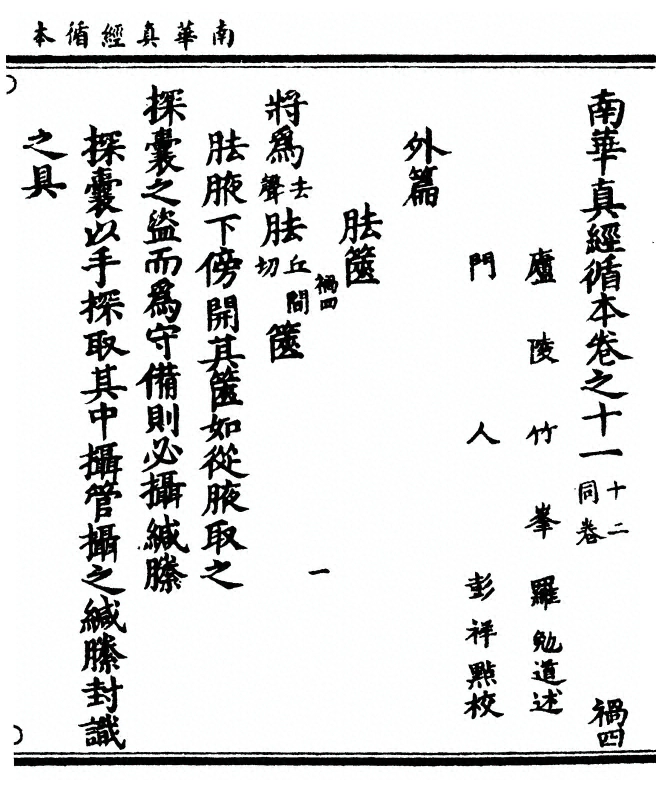 南華真經循本
南華真經循本卷之十一 十二同卷 禍四
廬陵竹峯羅勉道述
門人彭祥點校
外篇
胠篋
禍四 一
將為去聲胠丘間切篋
胠腋下傍開其篋如從腋取之
探囊之盜而為守備則必攝緘縢
探囊以手探取其中攝管攝之緘縢封識
之具